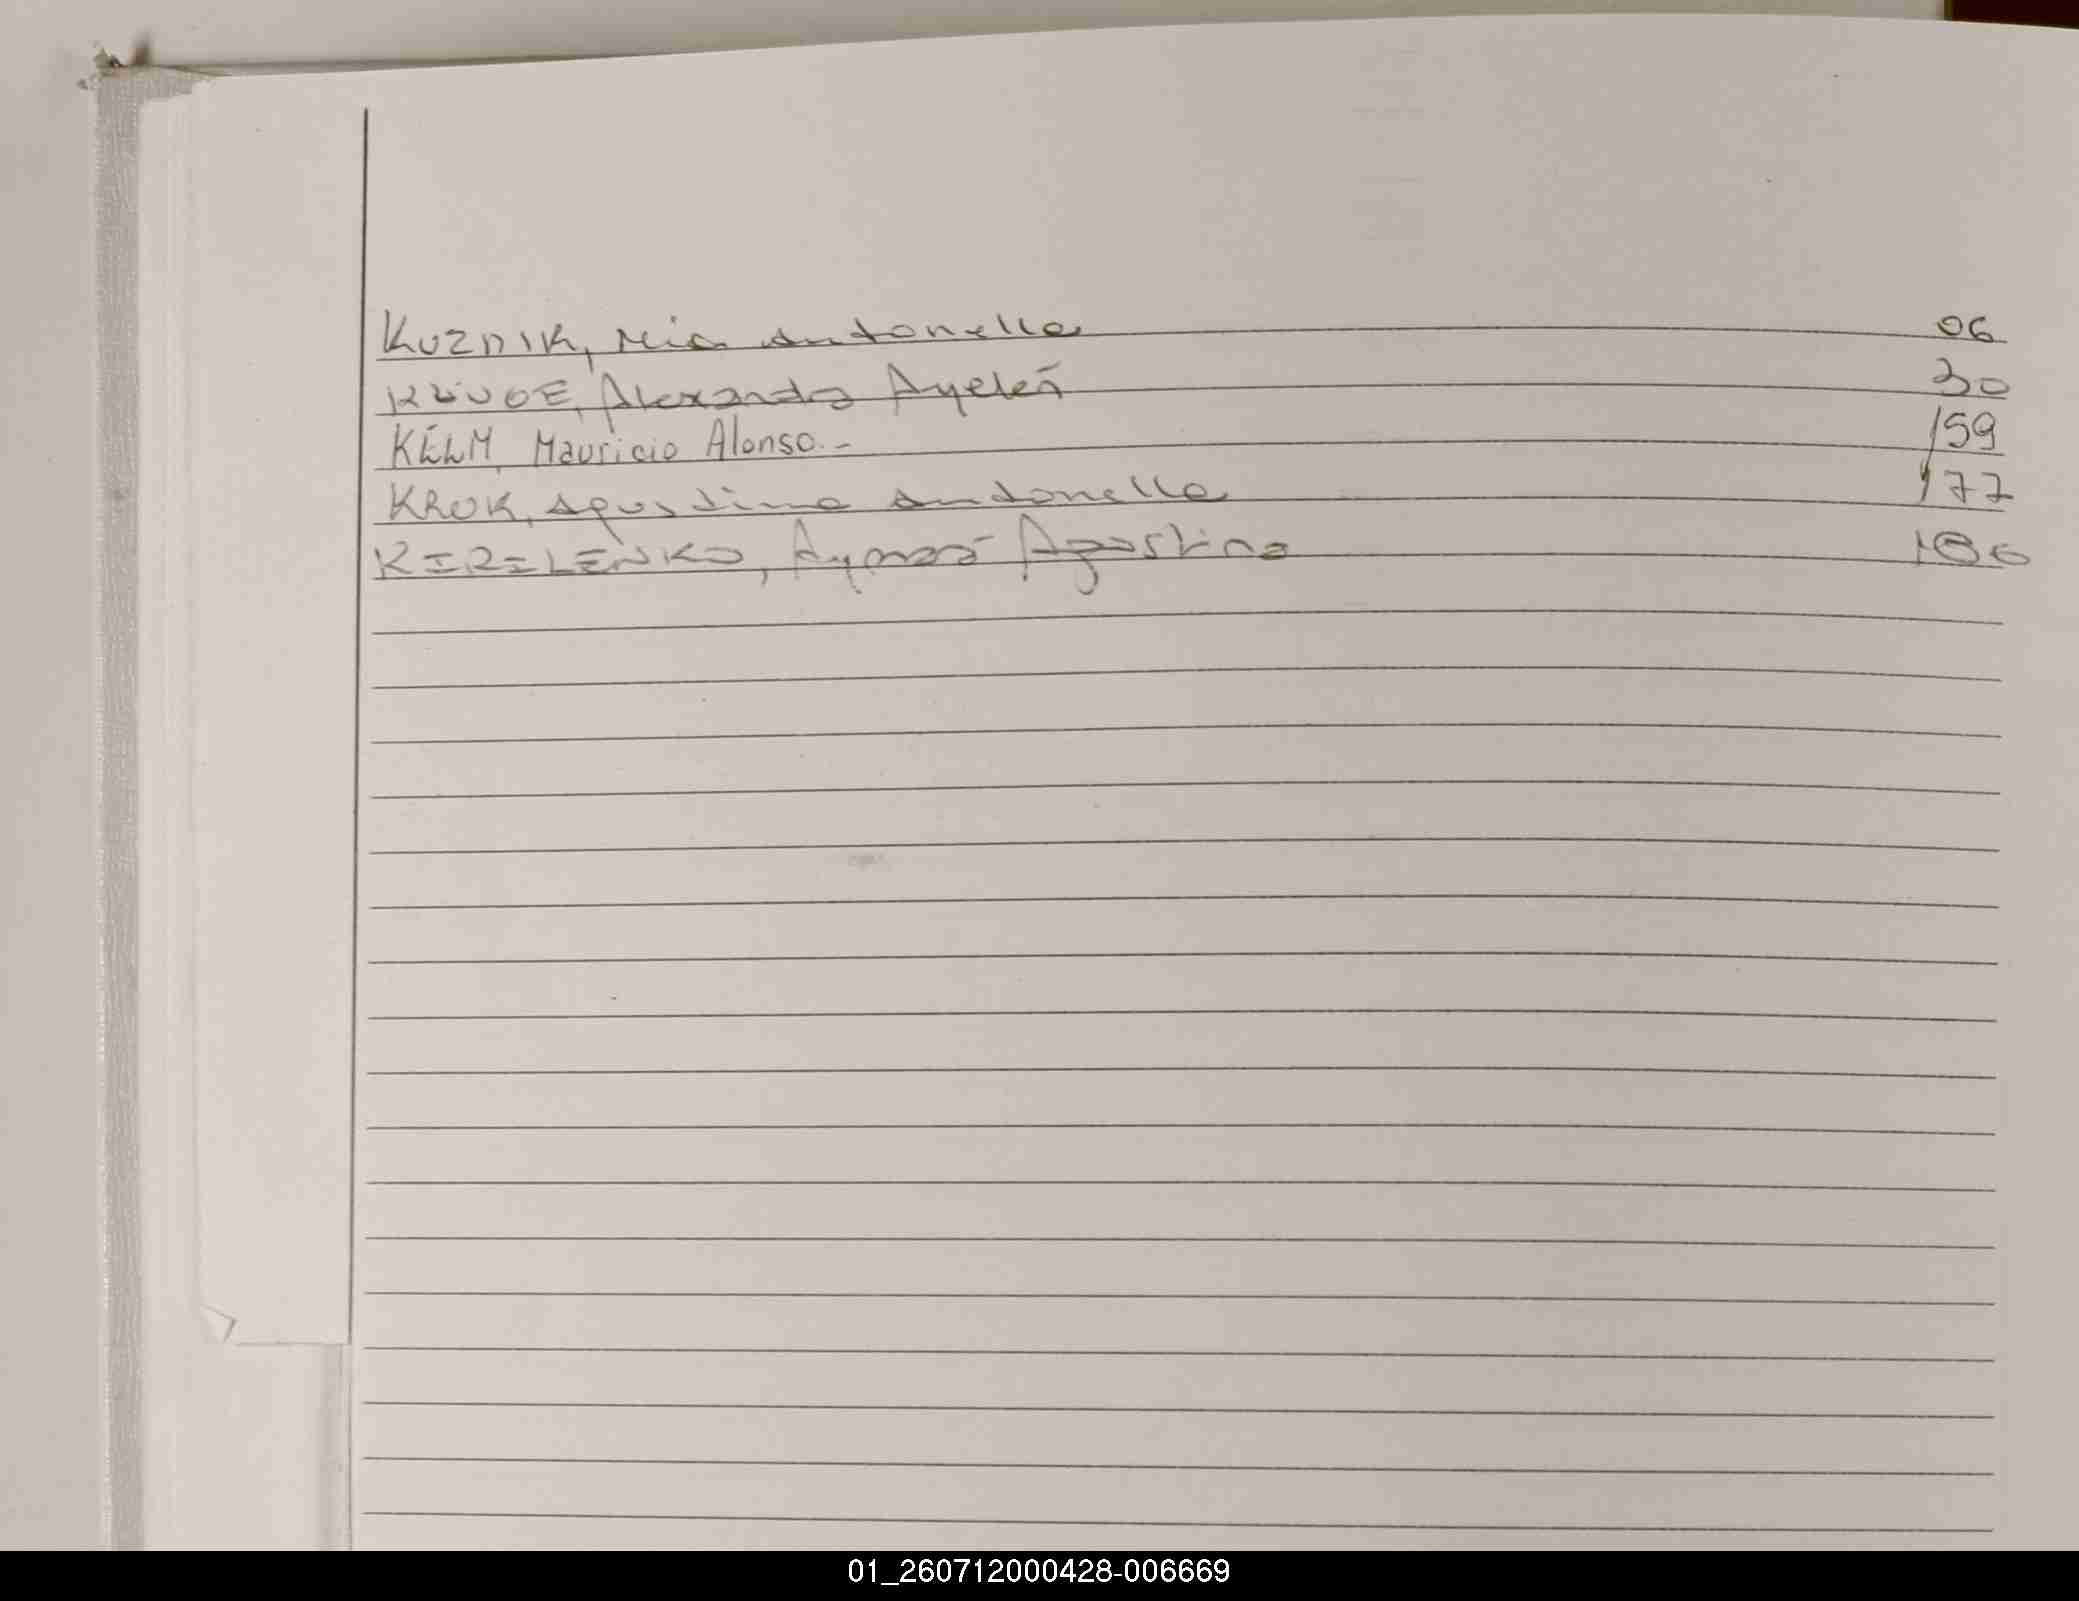 KUZNIK, Mia Antonella 06
KLUGE, Alexandra Ayelén 30
KELM, Mauricio Alonso.- 159
KROK, Agustina Antonella 177
KIRILENKO, Agustina 186
01_260712000428-006669